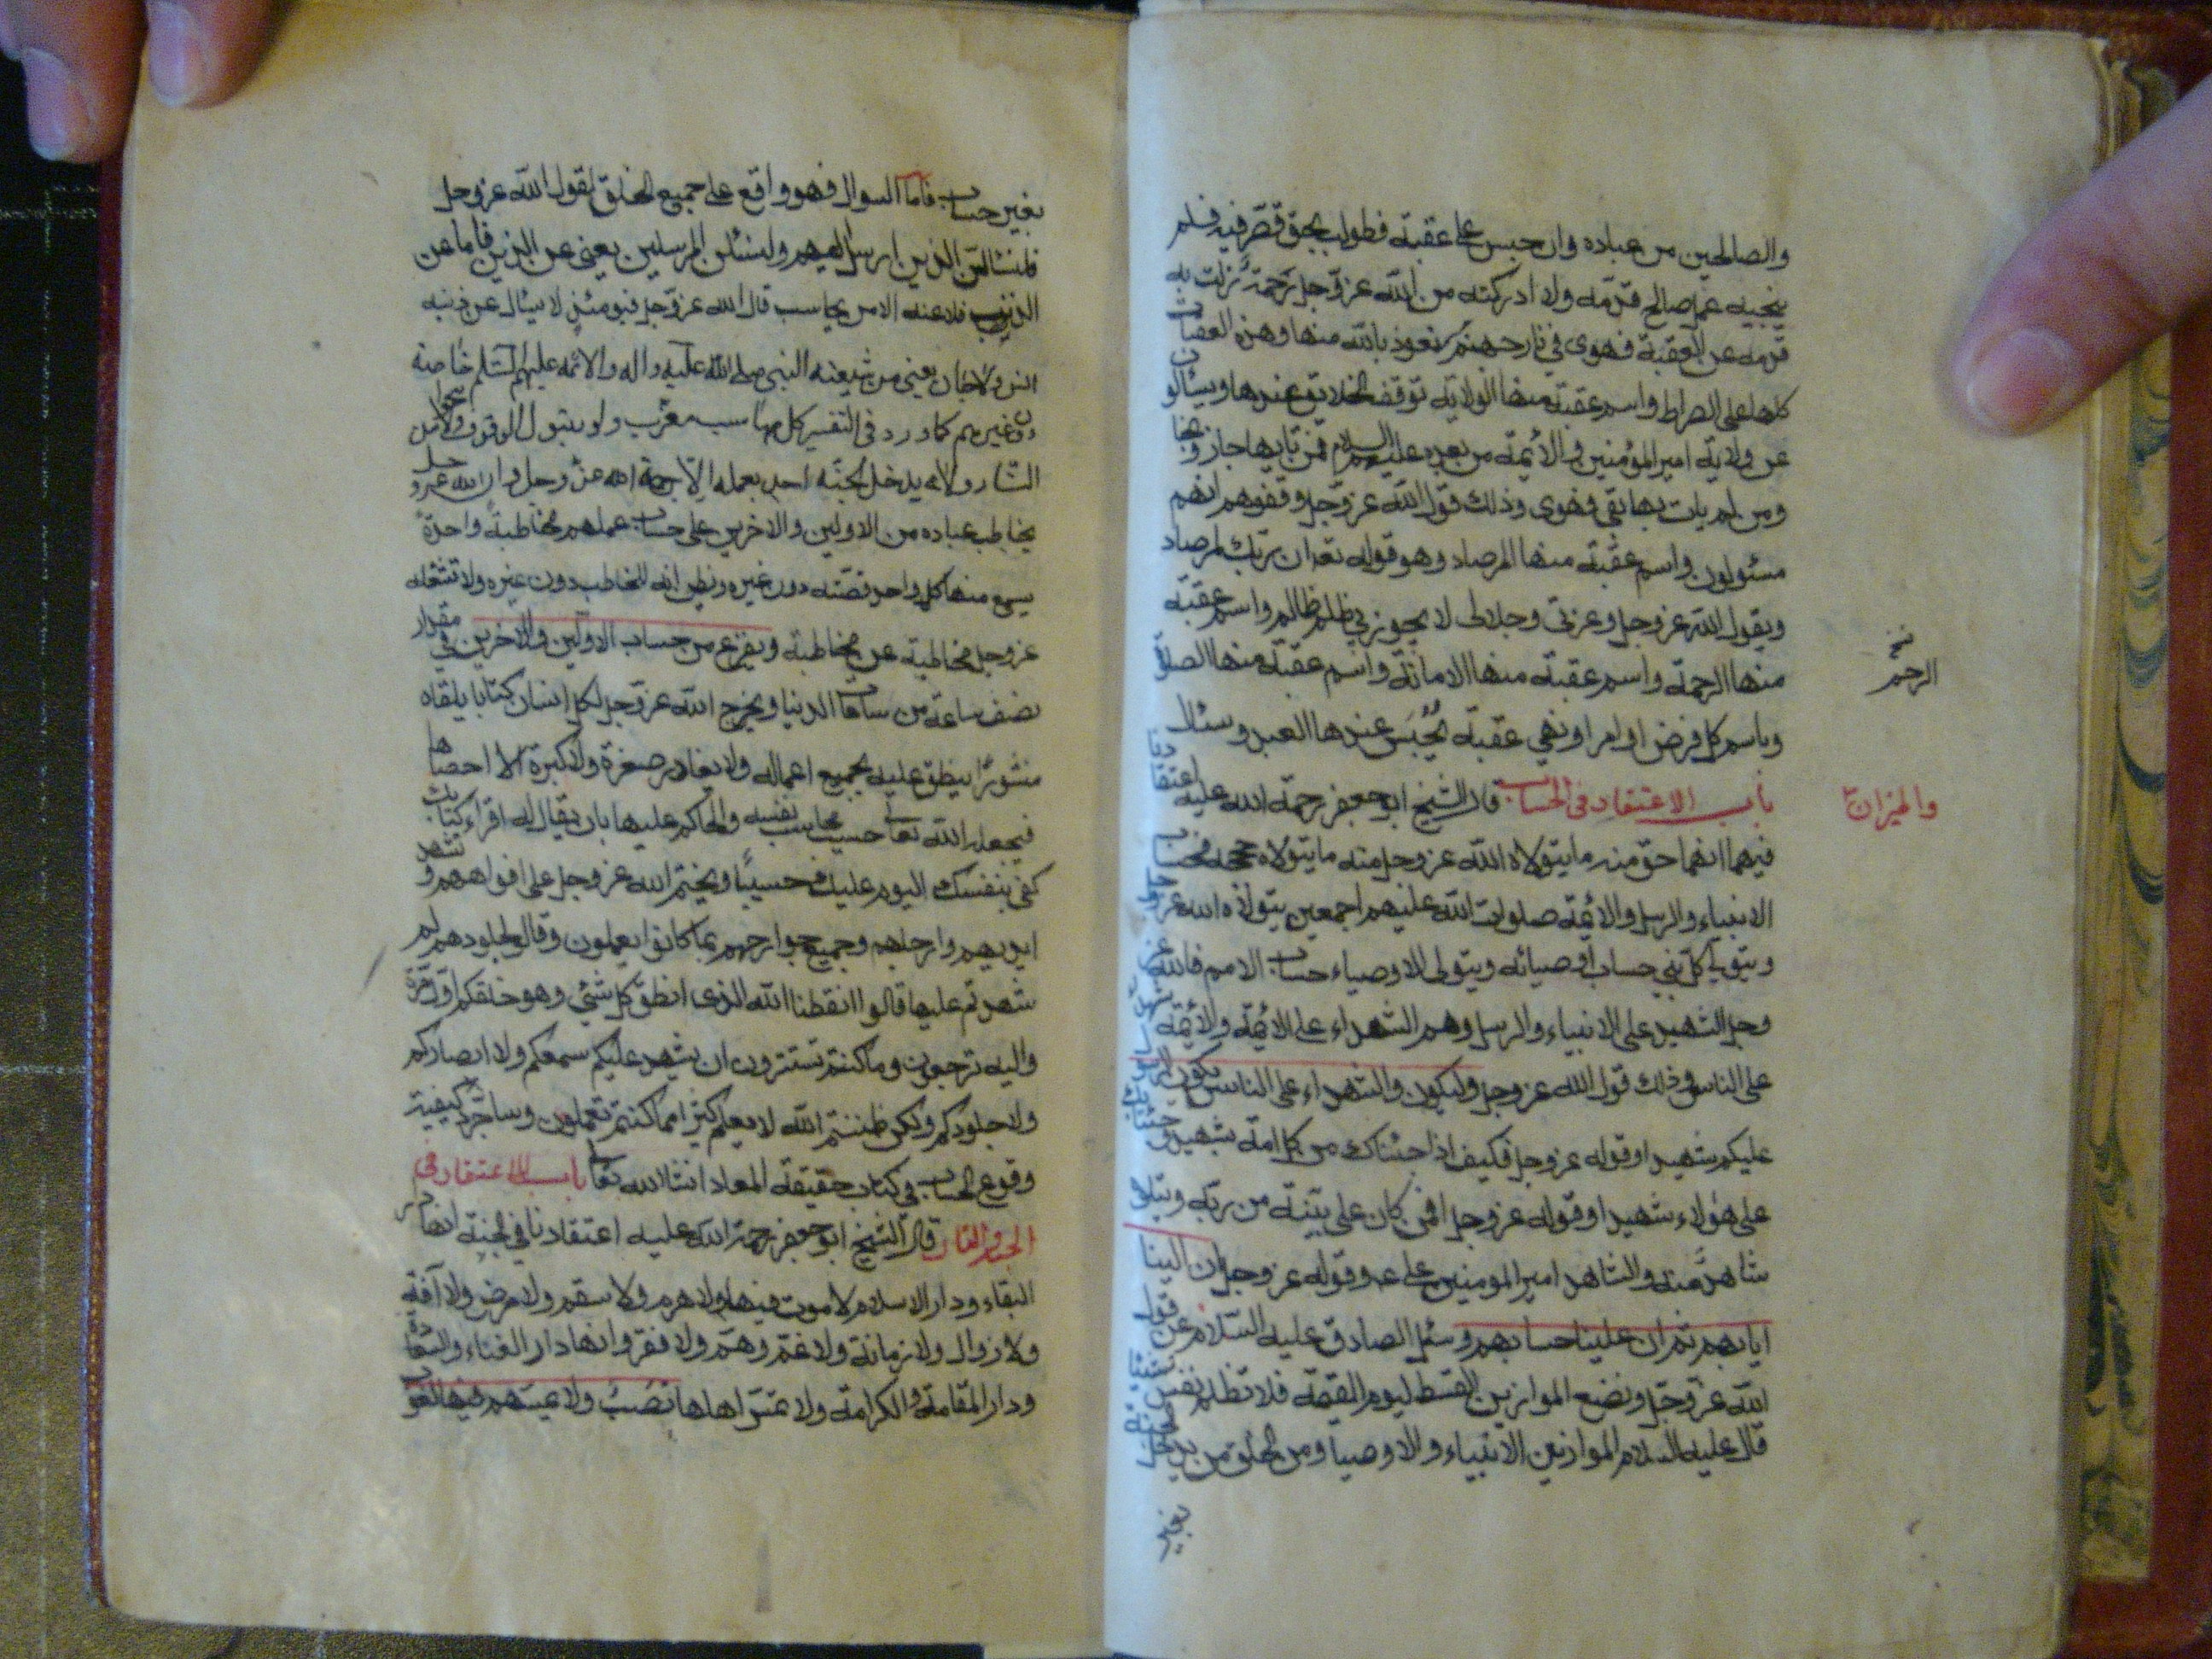 والصالحين من عباده وان حبس على عقبة فطولب بحق قصّر فيه فلم
ينجيه عمل صالح قدّمه ولا ادركته من الله عزّوجل رَحمَة زلّت به
قدمه عن العقبة فهوى في نار جهنم نعوذ بالله منها وهذه العقبات
كلها على الصراط واسم عقبة منها الولاية توقف الخلايق عندها ويسئالون
عن ولاية امير المؤمنين والأئمة من بعده عليهم السلام فمن اتى بها جاز ونجا
ومن لم يات بها بقى فهوى وذلك قول الله عز وجل وقفوهم انهم
مسئولون واسم عقبة منها المرصاد وهو قوله تعا ان ربّك لبالمرصاد
ويقول الله عز وجل وعزتي وجلالى لا يجوزني ظلم ظالم واسم عقبة
منها الرحمة واسم عقبة منها الامانة واسم عقبة منها الصلوة
الرحم
وباسم كل فرض او امر او نهي عقبة يُحْبَس عندها العبد وسئل
باب الاعتقاد في الحساب قال الشيخ ابو جعفر رحمة الله عليه اعتقادنا
والميزان
فيهما انهما حق منه ما يتولاه الله عز وجل منه ما يتولاه حججه فحساب
الانبياء والرسل والائمة صلوات الله عليهم اجمعين يتولاه الله عزوجل
ويتولى كل نبي حساب اوصيائه ويتولى الاوصياء حساب الامم فالله عز
وجل الشهيد على الانبياء والرسل وهم الشهداء على الائمة والائمة شهداء
على الناس وذلك قول الله عز وجل وليكون والشهداء على الناس يكون الرسول
عليكم شهيدا وقوله عز وجل فكيف اذا جئناك من كل امة بشهيد وجئنا بك
على هؤلاء شهيدا وقوله عز وجل افمن كان على بيّنة من ربه ويتلوه
شاهدٌ منه والشاهد امير المومنين على ع وقوله عز وجل ان الينا
ايابهم ثم ان علينا حسابهم وسئل الصادق عليه السّلام عن قول
الله عزّوجّل ونضع الموازين القسط ليوم القيمة فلا تظلم نفس شيئا
قال عليه السلام الموازين الانبياء والاوصيا ومن الخلق من يدخل الجنة
بغير
بغير حساب فاما السوال فهو واقع على جميع الخلق لقول الله عز وجل
فلنسئالن الذين ارسل اليهم ولنسئلن المرسلين يعنى عن الدين فاما عن
الذنب فلا عنه الا من يحاسب قال الله عزّوجل فيومئذٍ لا يسئال عن ذنبه
انس ولا جان يعنى من شيعته النبى صلى الله عليه واله والائمه عليهم السلم خاصة
دون غيرهم كما ورد في التفسير كل محاسب معذّب ولو بتول الوقوف ولا ينجوا من
النّار ولا يدخل الجنّه احد بعمله الّا برحمة الله عز وجل وان الله عز وجل
يخاطب عباده من الاولين والاخرين على حساب عملهم مخاطبة واحدة
يسمع منها كل واحد قضّته دون غيره ويظن انه المخاطب دون غيره ولا تشغله
عز وجل مخاطبة عن مخاطبة ويفرغ من حساب الاولين والاخرين في مقدار
نصف ساعة من ساعات الدنيا ويخرج الله عزّوجل لكل انسان كتابا يلقاه
منشورًا ينطق عليه بجميع اعماله ولا يغادر صغيرة ولا كبيرة الا احصاها
فيجعله الله تعالى حسيب نفسه والحاكم عليها بان يقال له اقراء كتابك
كفى بنفسك اليوم عليك حسيبًا ويختم الله عز وجل على افواههم وتشهد
ايديهم وارجلهم وجميع جوارحهم بما كانوا يعملون وقال لجلودهم لم
شهدتم علينا قالوا انقطنا الله الذى انطق كل شئي وهو خلقكم اوّل مرّة
واليه ترجعون وما كنتم تستترون ان يشهد عليكم سمعكم ولا ابصاركم
ولا جلودكم ولكن ظننتم الله لا يعلم كثيرا مما كنتم تعملون وساجّرد كيفية
وقوع الحساب في كتاب حقيقة المعاد انشا الله تعالى باب الاعتقاد فى
الجنة والنار قال الشيخ ابو جعفر رحمة الله عليه اعتقادنا في الجنة انها دار
البقاء ودار الاسلام لا موت فيها ولا هرم ولا سقم ولا مرض ولا آفة
ولا زوال ولا زمانة ولا غم وهم ولا فقر وانها دار الغناء والسّعادة
ودار المقامة والكرامة ولا يمسّ اهلها نَصَبٌ ولا يمسّهم فيها لغوب